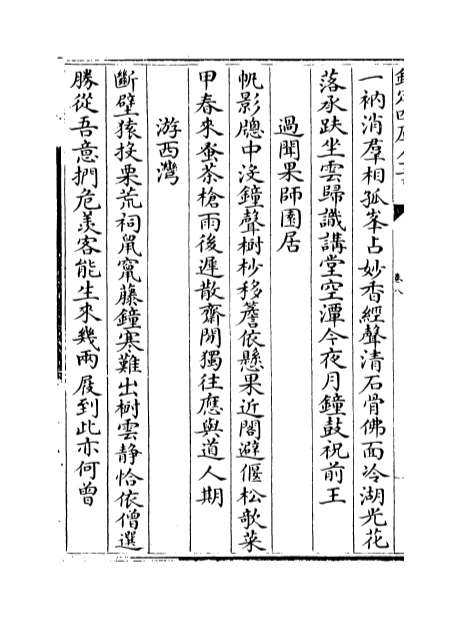 欽定四庫全書
卷八
一衲消羣相孤峯占妙香經聲清石骨佛面冷湖光花
落承趺坐雲歸識講堂空潭今夜月鐘鼓祝前王
過聞果師園居
帆影牕中沒鐘聲樹杪移簷依懸果近閣避偃松欹菜
甲春來蚤茶槍雨後遲散齋閒獨往應與道人期
游西灣
斷壁猿投栗荒祠鼠竄藤鐘寒難出樹雲静恰依僧選
勝從吾意捫危羡客能生來幾兩屐到此亦何曾